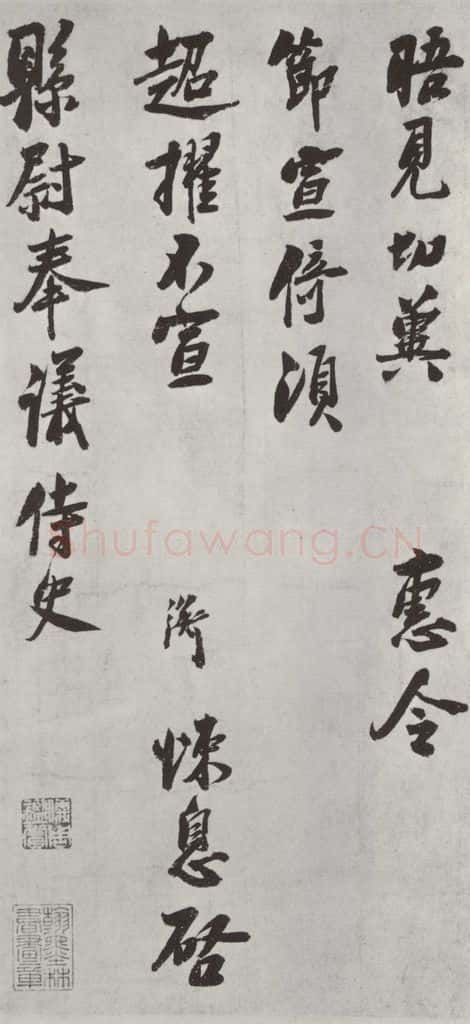 晤見切冀 惠令
節宣倚須
超擢不宣 悚息啓
縣尉奉議侍史
翰墨林
書畫章
shufawang.CN